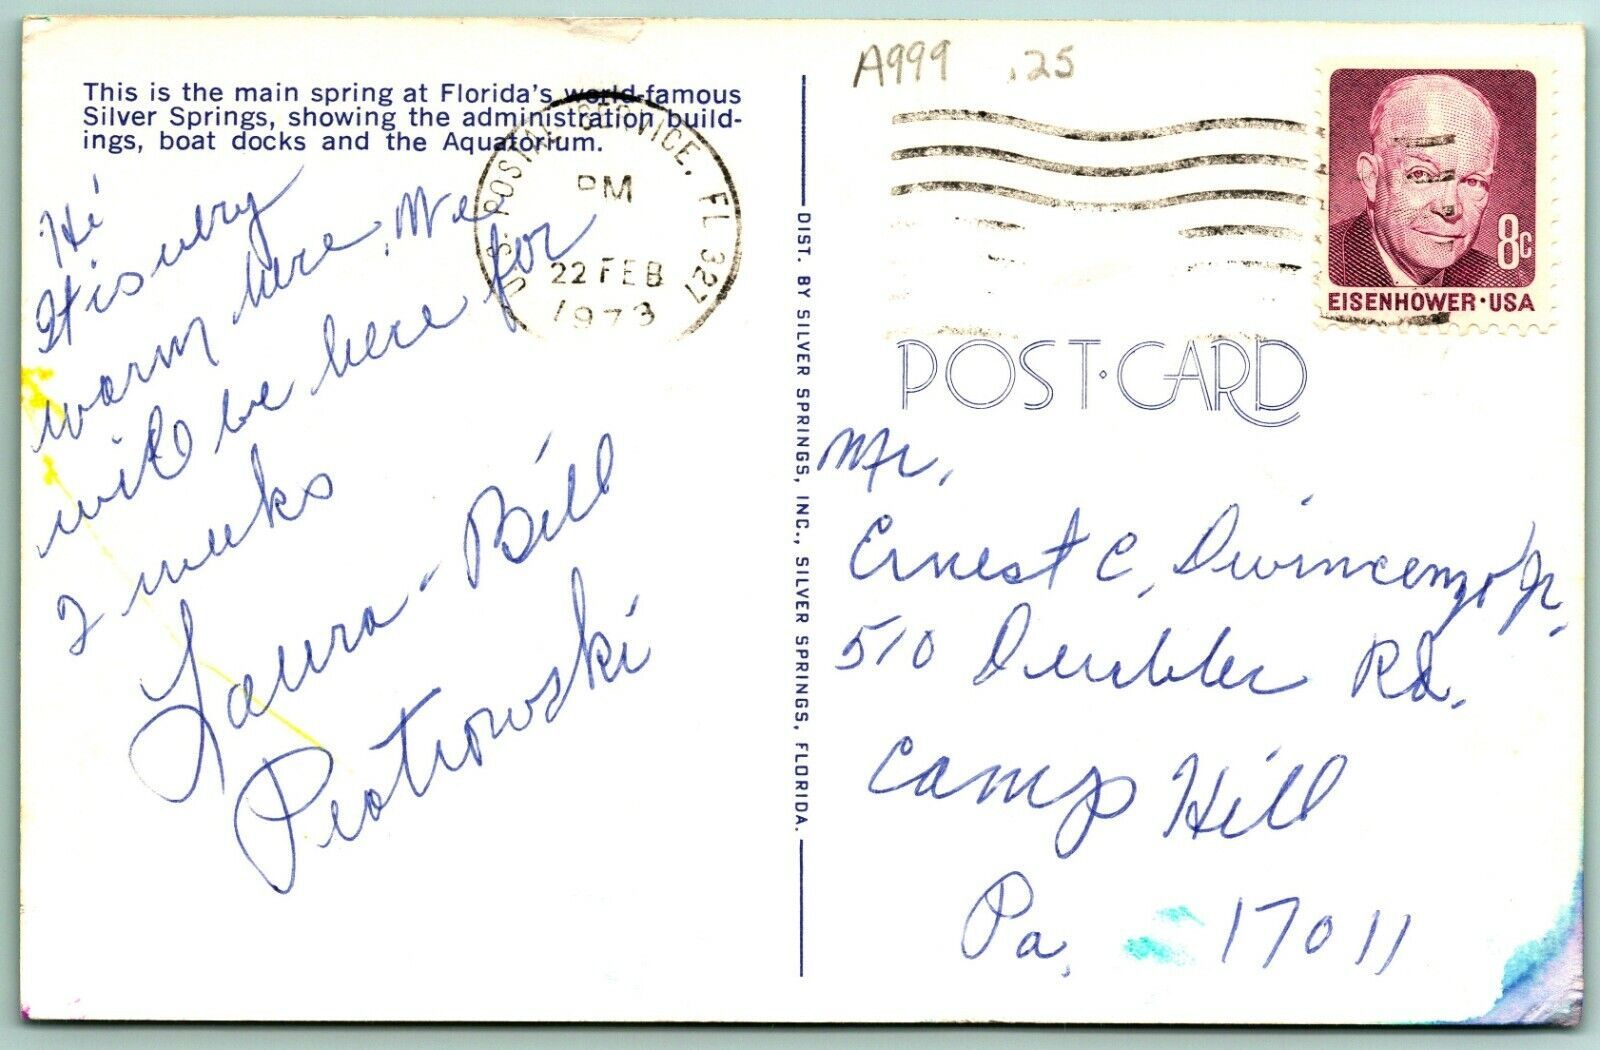 This is the main spring at Florida's world-famous
Silver Springs, showing the administration build-
ings, boat docks and the Aquatorium.
Hi
It is very
warm here, We
will be here for
2 weeks
Laura - Bill
Piotrowski
U.S. POSTAL SERVICE, FL 327
PM
22 FEB
1973
DIST. BY SILVER SPRINGS, INC., SILVER SPRINGS, FLORIDA.
A999 .25
8c
EISENHOWER·USA
POST·CARD
Mr.
Ernest C. Divincenzo Jr.
510 Deubler Rd.
Camp Hill
Pa. 17011